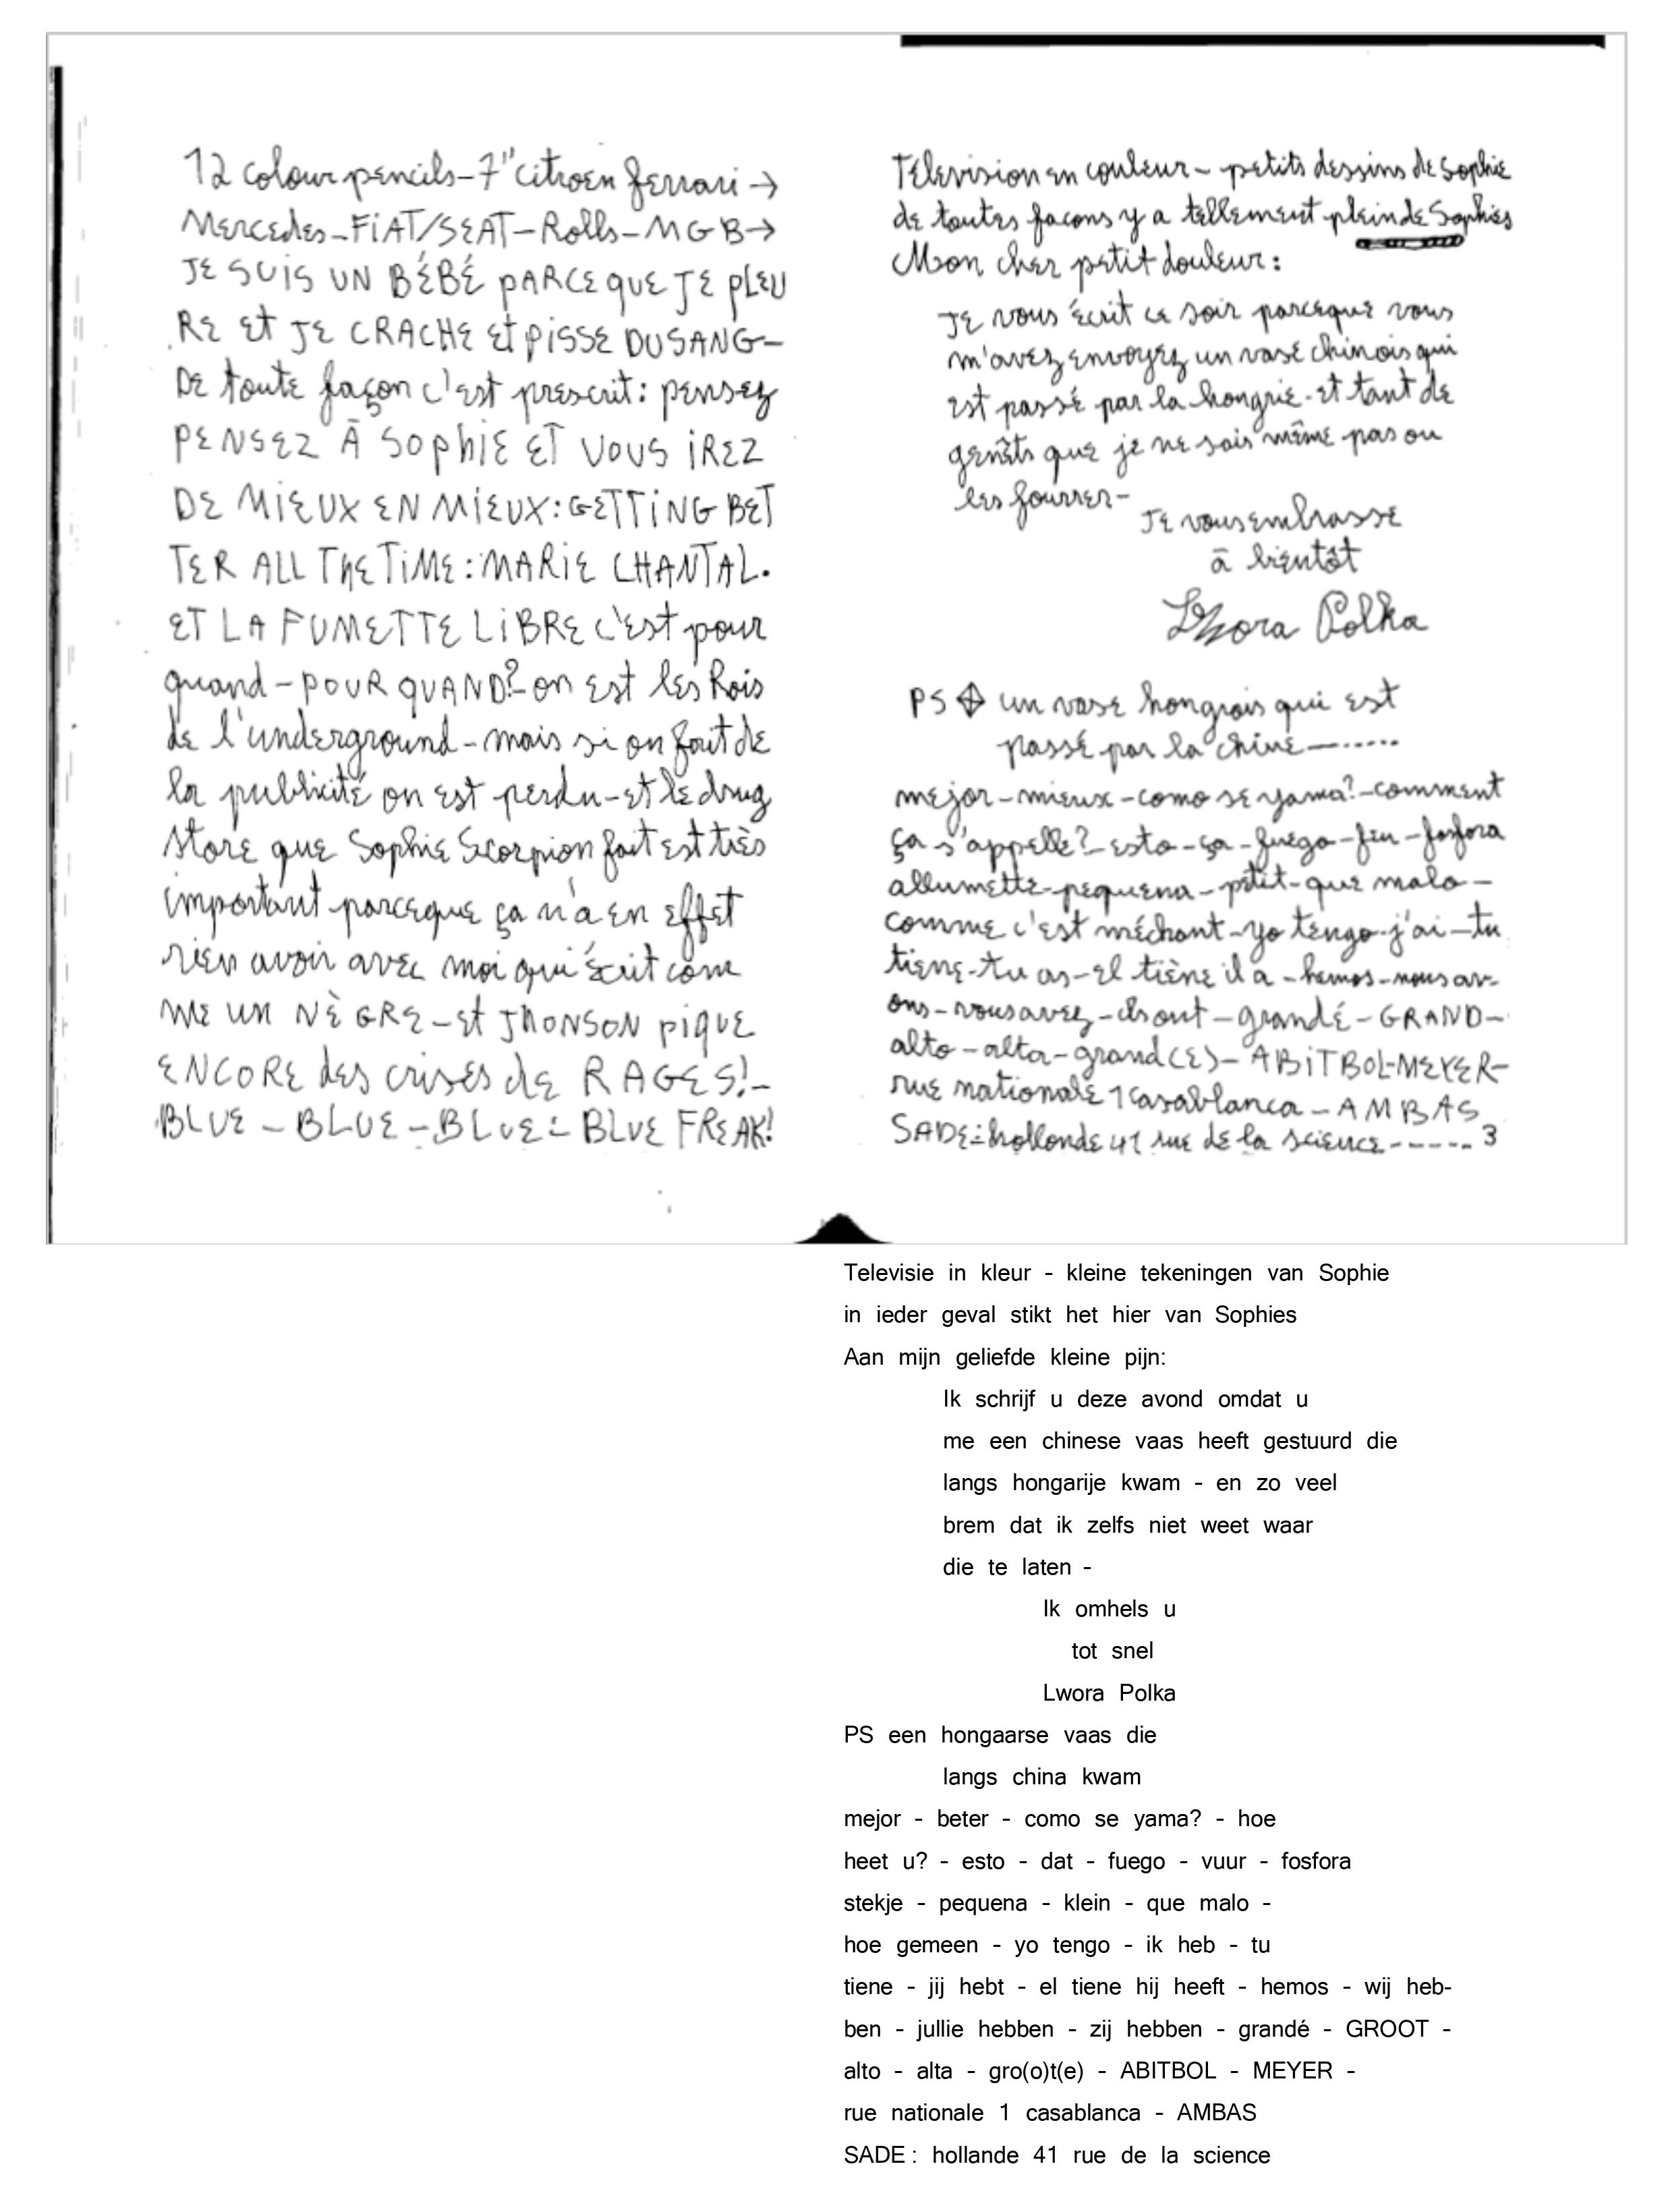 12 colour pencils-7" citroën ferrari →
Mercedes-FIAT/SEAT-Rolls-MGB→
JE SUIS UN BÉBÉ PARCE QUE JE PLEU
RE ET JE CRACHE et PISSE DU SANG-
DE toute façon c'est prescrit: pensez
PENSEZ À SOPHIE ET VOUS IREZ
DE MIEUX EN MIEUX: GETTING BET
TER ALL THE TIME: MARIE CHANTAL.
ET LA FUMETTE LIBRE c'est pour
quand-POUR QUAND?-on est les Rois
de l'underground-mais si on fait de
la publicité on est perdu-et le drug
store que Sophie Scorpion fait est très
important parceque ça n'a en effet
rien avoir avec moi qui écrit com
me un NÈGRE-et JHONSON pique
ENCORE des crises de RAGES!-
BLUE - BLUE - BLUE - BLUE FREAK!
Télevision en couleur - petits dessins de Sophie
de toutes facons y a tellement plein de Sophies
Mon cher petit douleur:
Je vous écrit ce soir parceque vous
m'avez envoyez un vase chinois qui
est passé par la hongrie-et tant de
genêts que je ne sais même pas ou
les fourrer-
Je vous embrasse
à bientôt
Lwora Polka
PS un vase hongrois qui est
passé par la chine-------
mejor-mieux-como se yama?-comment
ça s'appelle?-esto-ça-fuego-feu-fosfora
allumette-pequena-petit-que malo-
comme c'est méchant-yo tengo-j'ai-tu
tiene-tu as-el tiène il a-hemos-nous av-
ons-vous avez-ils ont-grandé-GRAND-
alto-alta-grand(e)-ABITBOL-MEYER-
rue nationale 1 casablanca-AMBAS
SADE: hollande 41 rue de la science------3
Televisie in kleur - kleine tekeningen van Sophie
in ieder geval stikt het hier van Sophies
Aan mijn geliefde kleine pijn:
Ik schrijf u deze avond omdat u
me een chinese vaas heeft gestuurd die
langs hongarije kwam - en zo veel
brem dat ik zelfs niet weet waar
die te laten -
Ik omhels u
tot snel
Lwora Polka
PS een hongaarse vaas die
langs china kwam
mejor - beter - como se yama? - hoe
heet u? - esto - dat - fuego - vuur - fosfora
stekje - pequena - klein - que malo -
hoe gemeen - yo tengo - ik heb - tu
tiene - jij hebt - el tiene hij heeft - hemos - wij heb-
ben - jullie hebben - zij hebben - grandé - GROOT -
alto - alta - gro(o)t(e) - ABITBOL - MEYER -
rue nationale 1 casablanca - AMBAS
SADE : hollande 41 rue de la science